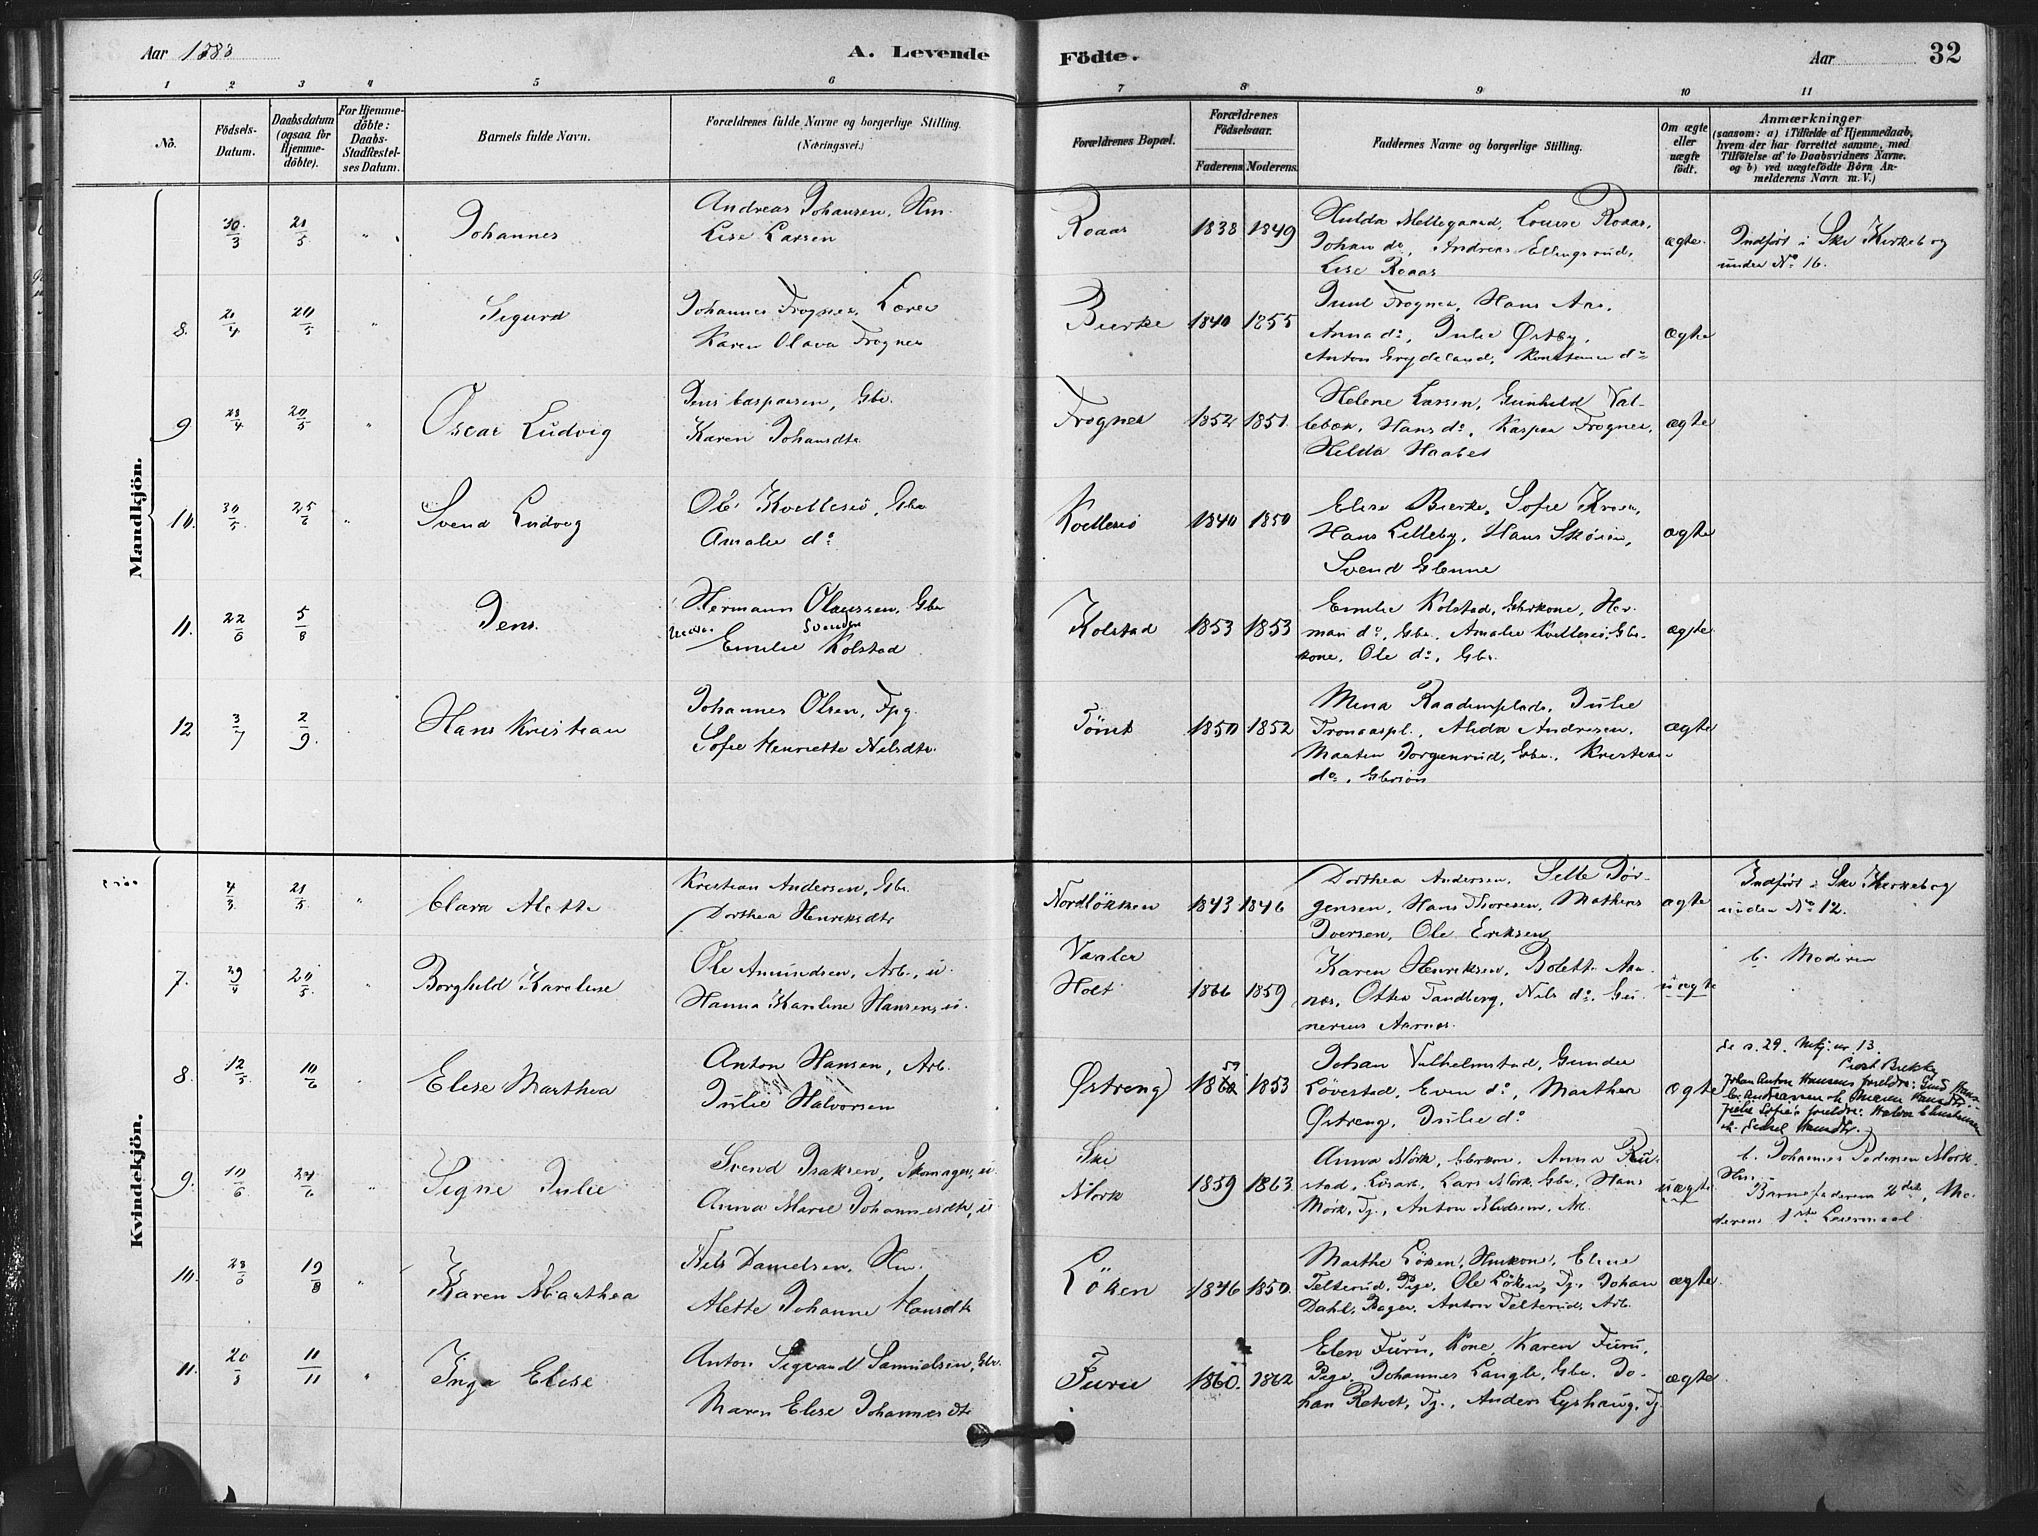 Aar 1883
A. Levende
Födte.
Aar
32
1 2 3 4 5 6 7 8 9 10 11
No.
Födsels-
Datum.
Daabsdatum
(ogsaa for
Hjemme-
döbte).
For Hjemme-
döbte:
Daabs-
Stadfæstel-
ses Datum.
Barnets fulde Navn.
Forældrenes fulde Navne og borgerlige Stilling.
(Næringsvei.)
Forældrenes Bopæl.
Forældrenes
Födselsaar.
Faderens
Moderens.
Faddernes Navne og borgerlige Stilling.
Om ægte
eller
uægte
födt.
Anmærkninger
(saasom: a) i Tilfælde af Hjemmedaab,
hvem der har forrettet samme, med
Tilföielse af to Daabsvidners Navne.
og b) ved uægtefödte Börn An-
melderens Navn m. V.)
Mandkjön.
30/3 21/5 " Johannes
Andreas Johansen, Hm.
Lise Larsen
Roaas 1838 1849
Hulda Mellegaard, Louise Roaas,
Johan do, Andreas Ellingsrud,
Lise Roaas
ægte
Indført i Ski Kirkebog
under No 16.
8. 21/4 20/5 " Sigurd
Johannes Frogner, Lærer
Karen Olava Frogner
Bierke 1840 1855
Juul Frogner, Hans Aas,
Anna do, Julie Østby,
Anton Grydeland, Konstance do
ægte
9 28/4 20/5 " Oscar Ludvig
Jens Caspersen, Gbr.
Karen Johansdtr
Frogner 1852 1851
Helene Larsen, Gunhild Val-
lebæk, Hans do, Kaspar Frogner,
Helda Haabet
ægte
10. 30/5 25/6 " Svend Ludvig
Ole Kvellesiö, Gbr
Amalie do
Kvellesiö 1840 1850
Elise Bierke, Sofie
Hans Lilleby, Hans Skøien,
Svend Glenne
ægte
11. 22/6 5/8 Jens
Hermann Olaussen, Gbr
Svendsen
Emilie Kolstad
Kolstad 1853 1853
Emilie Kolstad, Gbrkone, Her-
man do, Gbr. Amalie Kvellesiö, Gbr-
kone, Ole do, Gbr.
ægte
12 3/7 2/9 Hans Kristian
Johannes Olsen, Fpg.
Sofie Henriette Nilsdtr.
Tömt 1850 1852
Mina Raademplads, Julie
Tronaaspl., Alida Andresen,
Maarten Jorgenrud, Gbr., Kristian
do, Gbrsön
ægte
Kvindekjön.
4/3 21/5 " Clara Alette
Kristian Andersen, Gbr.
Dorthea Henriksdtr
Nordlökken 1843 1846
Dorthea Andersen, Sille Jör-
gensen, Hans Thoresen, Mathias
Iversen, Ole Eriksen
ægte
Indført i Ski Kirkebog
under No 12.
7. 29/4 20/5 " Borghild Karoline
Ole Amundsen, Arb., u.
Hanna Karoline Hansen, u.
Vaaler
Holt 1866 1859
Karen Henriksen, Bolette Aar-
næs, Otter Tandberg, Nils do, Gu-
nerius Aarnæs.
uægte
b. Moderen
8. 12/5 10/6 Elise Marthea
Anton Hansen, Arb.
Julie Halvorsen
Østreng 59 1860 1853
Johan Vilhelmstad, Gunder
Løvestad, Even do, Marthea
Østreng, Julie do
ægte
Se s. 29. Mkj. nr. 13.
Johan Anton Hansens foreldre:
Julie Sofie's foreldre: Halvor Christensen
9. 10/6 24/6 " Signe Julie
Svend Isaksen, Skomager, u.
Anna Marie Johannesdtr, u.
Ski
Mörk 1859 1863
Anna Mörk, Gbrkone, Anna Ru-
stad, Lösarb., Lars Mörk, Gbr., Hans
Mörk, Tj., Anton Madsen, Arb.
uægte
b. Johannes Pedersen Mörk.
Hm.
Barnefaderens 2det, Mo-
derens 1ste Leiermaal
10. 28/6 19/8 " Karen Marthea
Nils Danielsen, Hm.
Alette Johanne Hansdtr
Löken 1846 1850.
Marthe Löken, Hmkone, Eline
Telterud, Pige, Ole Löken, Tj., Johan
Dahl, Bager, Anton Telterud, Arb.
ægte
11. 20/8 11/11 " Inga Elise
Anton Sigvard Samuelsen, Gbr.
Maren Elise Johannesdtr
Furu 1860. 1862
Elen Furu, Kone, Karen Furu,
Pige, Johannes Langli, Gbr., Jo-
han Retvet, Tj., Anders Lyshaug, Tj.
ægte